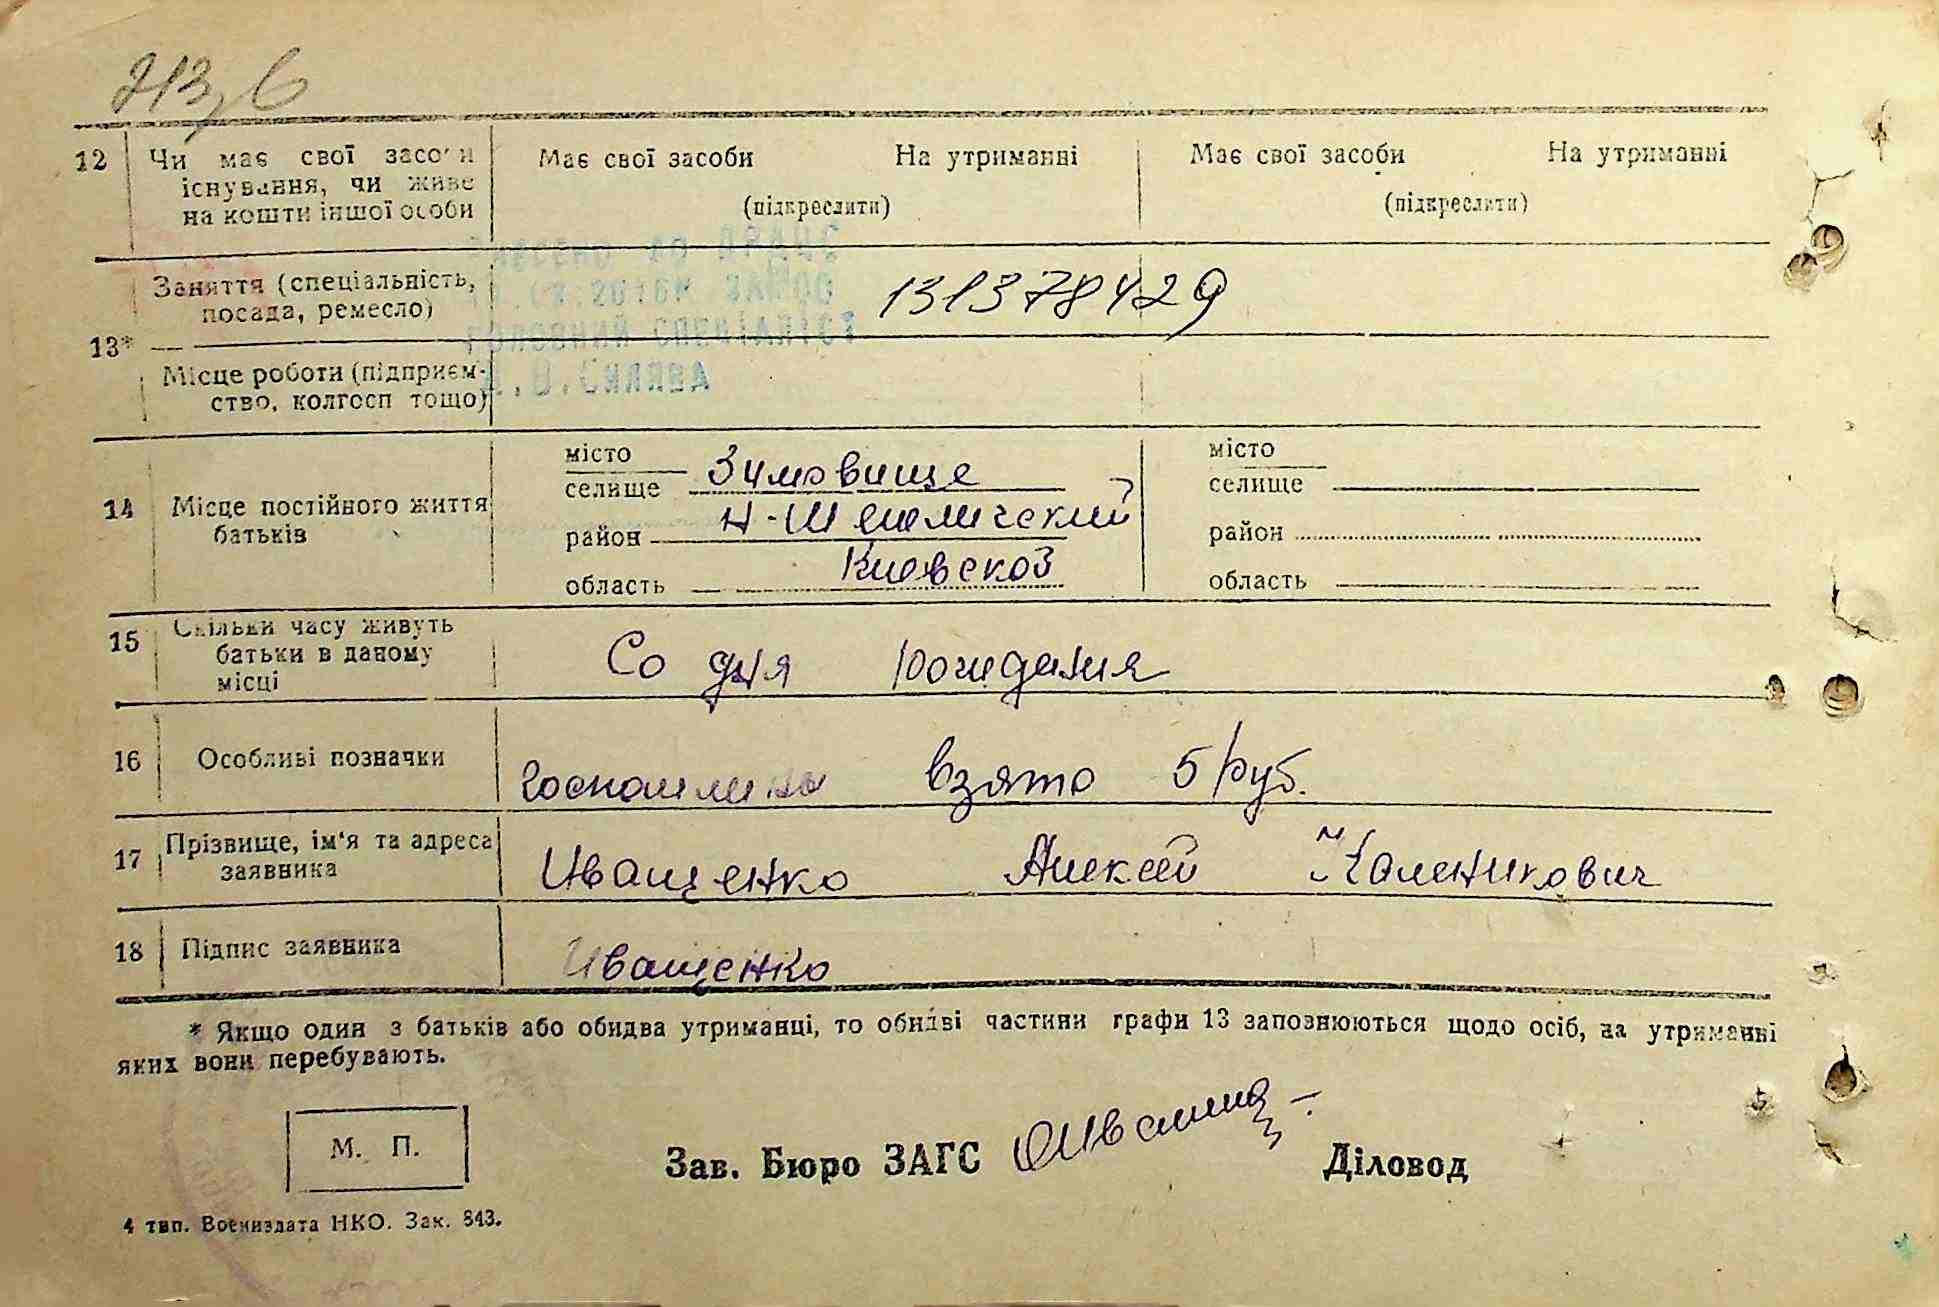 213, 6
12 Чи має свої засоби Має свої засоби На утриманні Має свої засоби На утриманні
існування, чи живе
на кошти іншої особи (підкреслити) (підкреслити)
ВНЕСЕНО ДО ДРАЦС
Заняття (спеціальність, 131378429
посада, ремесло)
ГОЛОВНИЙ СПЕЦІАЛІСТ
13*
Місце роботи (підприєм-
ство, колгосп тощо)
14 Місце постійного життя батьків
місто
селище Зимовище
район Н-Шепеличский
область Киевской
місто
селище
район
область
15 Скільки часу живуть
батьки в даному Со дня рождения
місці
16 Особливі позначки госпошлины взято 5 руб.
17 Прізвище, ім'я та адреса
заявника Иващенко Алексей Каленикович
18 Підпис заявника Иващенко
* Якщо один з батьків або обидва утриманці, то обидві частини графи 13 запознюються щодо осіб, на утриманні
яких вони перебувають.
М. П.
Зав. Бюро ЗАГС Діловод
4 тип. Воениздата НКО. Зак. 843.